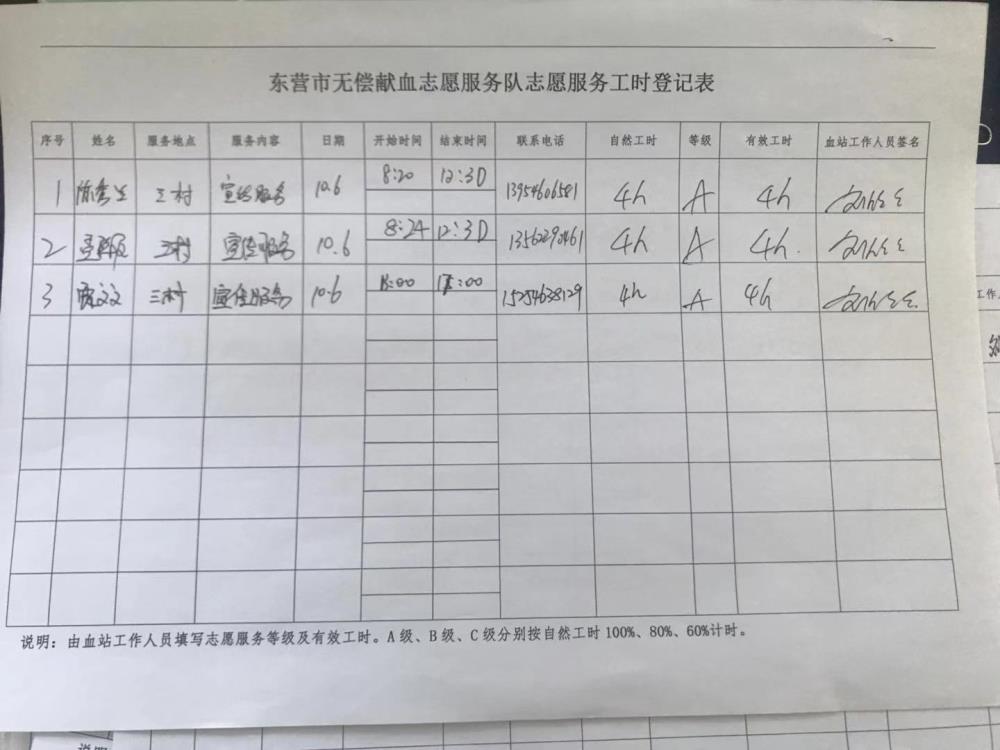 东营市无偿献血志愿服务队志愿服务工时登记表
序号 姓名 服务地点 服务内容 日期 开始时间 结束时间 联系电话 自然工时 等级 有效工时 血站工作人员签名
1 三村 宣传服务 10.6 8:20 12:30 13954606581 4h A 4h
2 三村 宣传服务 10.6 8:24 12:30 4h A 4h.
3 三村 宣传服务 10.6 15254638129 4h A 4h
说明：由血站工作人员填写志愿服务等级及有效工时。A级、B级、C级分别按自然工时100%、80%、60%计时。